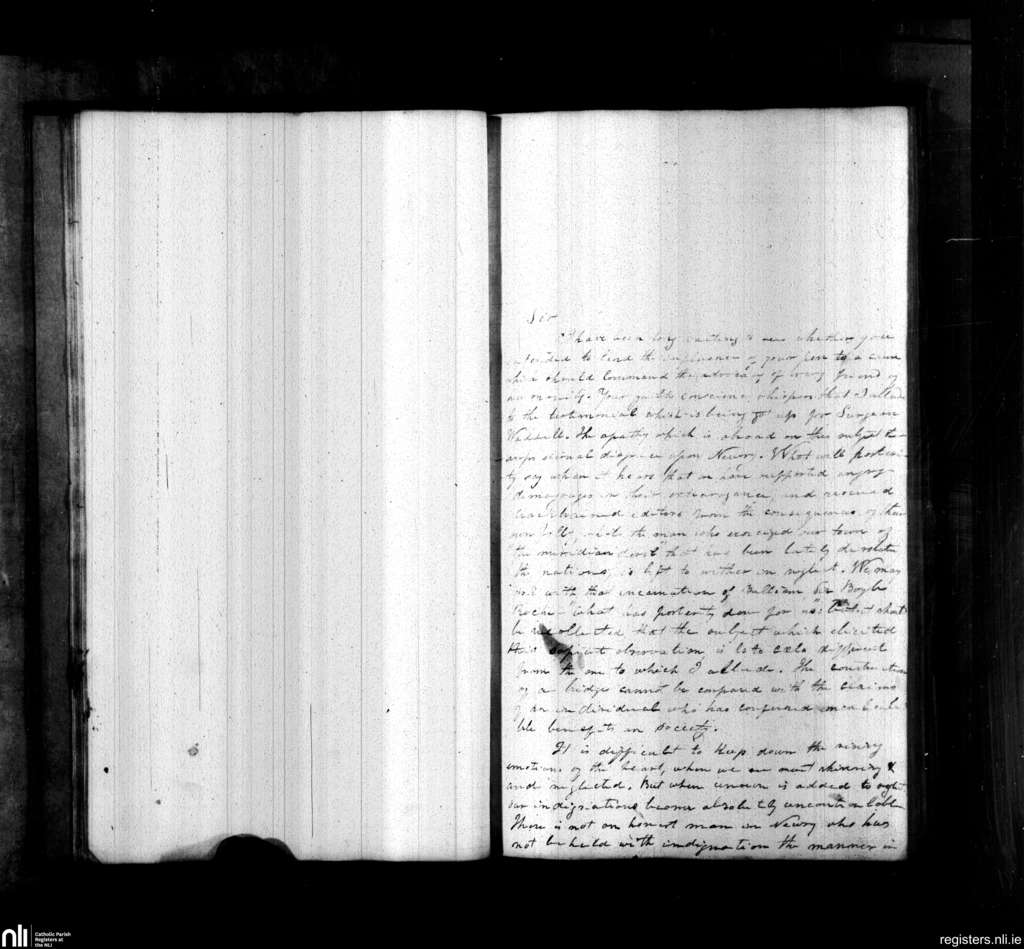 Sir
I have been long waiting to see whether you
intended to lend the influence of your pen to a cause
which should command the advocacy of every friend of
humanity. Your guilty conscience whispers that I allude
to the testimonial which is being got up for Surgeon
Waddell. The apathy which is abroad on this subject
disgrace upon Newry. What will posteri-
ty say when it hears that we have supported angry
demagogues in their extravagance, and rescued
editors from the consequences of their
own folly, while the man who exorcized our town of
"the meridian devil" that has been lately
the nations, is left to wither in neglect. We may
with that incarnation of Sir Boyle
Roche "What has posterity done for us": but it should
be recollected that the subject which elicited
this sapient observation is toto cælo different
from the one to which I allude. The construction
of a bridge cannot be compared with the claims
of an individual who has conferred incalcula
ble benefits on society.
It is difficult to keep down the rising
emotions of the heart, when we see merit
and neglected. But when is added to
our indignation become absolutely uncontrollable
There is not an honest man in Newry who has
not beheld with indignation the manner in
nli
Catholic Parish
Registers at
the NLI
registers.nli.ie